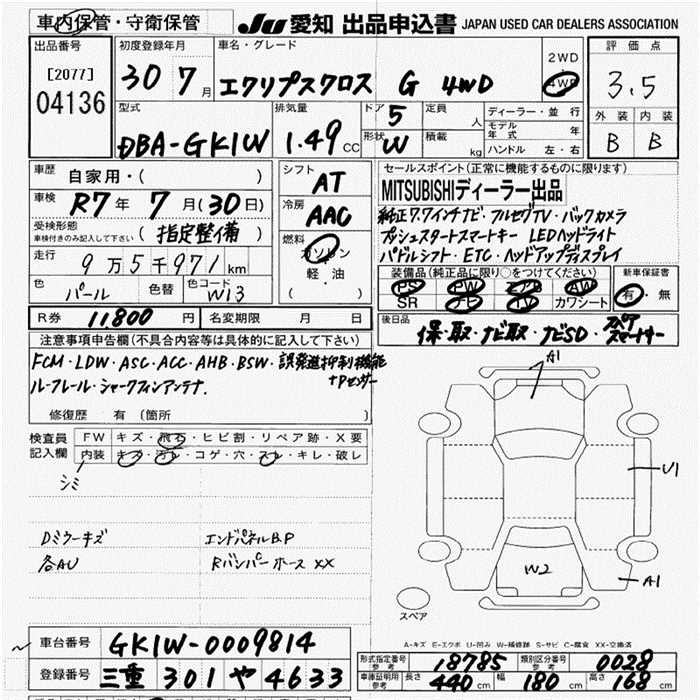 車内保管・守衛保管 JU 愛知 出品申込書 JAPAN USED CAR DEALERS ASSOCIATION
出品番号 [2077] 04136
初度登録年月 30 7月
車名・グレード エクリプスクロス G 4WD
2WD 4WD
評価点 3.5
外装 内装
B B
型式 DBA-GK1W
排気量 1.49 CC
ドア 5 形状 W
定員 人 積載 kg
ディーラー・並行
モデル年式 年
ハンドル 左・右
車歴 自家用・( )
車検 R7年 7月(30日)
受検形態 車検付きのみ記入して下さい (指定整備)
走行 9万5千971km
色 パール 色替 色コード W13
シフト AT
冷房 AAC
燃料 ガソリン
軽・油
( )
R券 11,800円 名変期限 月 日
セールスポイント(正常に機能するものに限ります)
MITSUBISHIディーラー出品
純正7.7インチナビ・フルセグTV・バックカメラ
プッシュスタートスマートキー LEDヘッドライト
パドルシフト・ETC・ヘッドアップディスプレイ
装備品(純正品に限り○をつけてください) 新車保証書
PS PW エアB AW 有・無
SR ナビ TV カワシート
後日品 保・取・ナビ取・ナビSD・スペアスマートキー
注意事項申告欄(不具合内容等は具体的に記入して下さい)
FCM・LDW・ASC・ACC・AHB・BSW・誤発進抑制機能
ルーフレール・シャークフィンアンテナ. +Pセンサー
修復歴 有 (箇所 )
検査員記入欄 FW キズ・飛石・ヒビ割・リペア跡・X要
内装 キズ・汚レ・コゲ・穴・スレ・キレ・破レ
シミ
Dミラーキズ エンドパネルB.P
各AU Rバンパーホース XX
A1
U1
W2
A1
スペア
A-キズ E-エクボ U-凹み W-補修跡 S-サビ C-腐食 XX-交換済
車台番号 GK1W-0009814
登録番号 三重 301 や 4633
形式指定番号 参考 18785 類別区分番号 参考 0028
車庫証明用 参考 長さ 440cm 幅 180cm 高さ 168cm